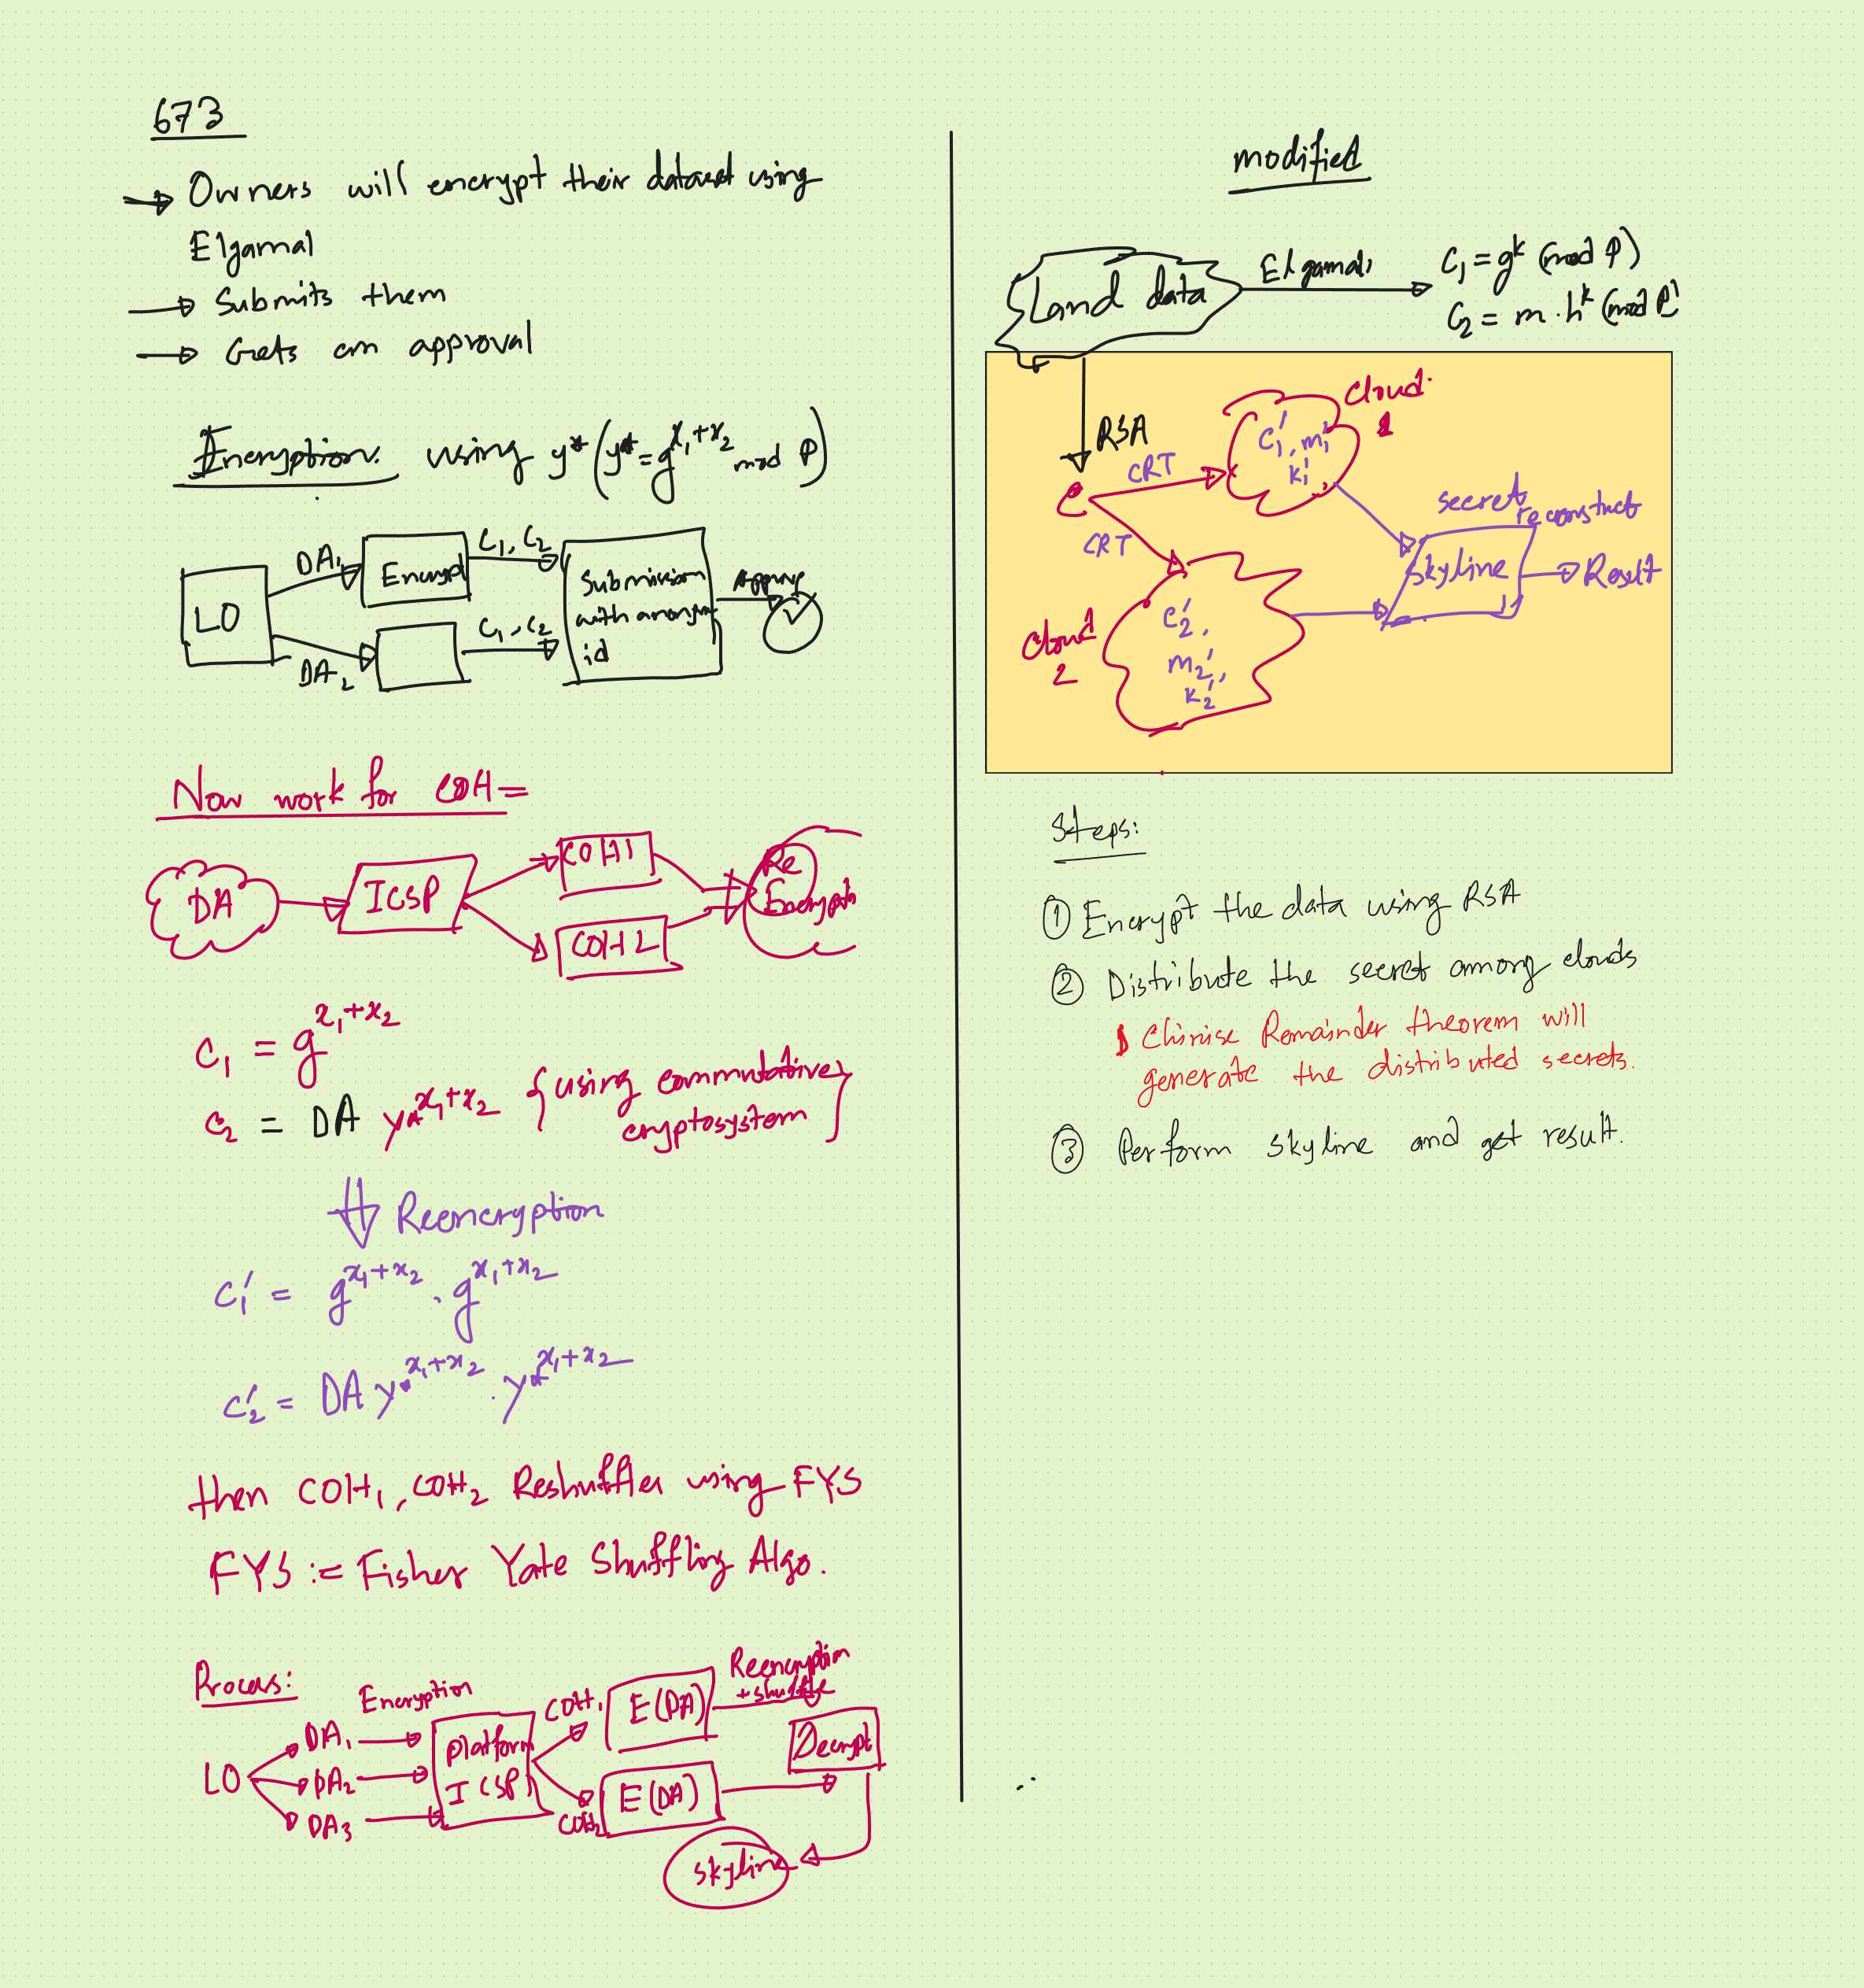 673
→ Owners will encrypt their dataset using
Elgamal
→ Submits them
→ Gets an approval
Encryption. using y* (y* = g^x₁+x₂ mod P)
LO
DA₁
DA₂
Encrypt
C₁, C₂
C₁, C₂
Submission
with anonym
id
Approve
Now work for COH=
DA
ICSP
COH1
COH2
Re
Encrypt
C₁ = g^x₁+x₂
C₂ = DA y*^x₁+x₂ {using commutative
cryptosystem}
Reencryption
C₁' = g^x₁+x₂ . g^x₁+x₂
C₂' = DA y*^x₁+x₂ . y*^x₁+x₂
then COH₁, COH₂ Reshuffles using FYS
FYS := Fisher Yate Shuffling Algo.
Process:
LO
DA₁
DA₂
DA₃
Encryption
Platform
ICSP
COH₁
COH₂
E(DA)
E(DA)
Reencryption
+ shuffle
Decrypt
skyline
modified
Land data
Elgamal
C₁ = g^k (mod P)
C₂ = m . h^k (mod P)
RSA
C
CRT
CRT
Cloud
1
C₁', m₁'
k₁'
Cloud
2
C₂',
m₂',
k₂'
secret
reconstruct
Skyline
Result
Steps:
① Encrypt the data using RSA
② Distribute the secret among clouds
Chinise Remainder theorem will
generate the distributed secrets.
③ Perform skyline and get result.